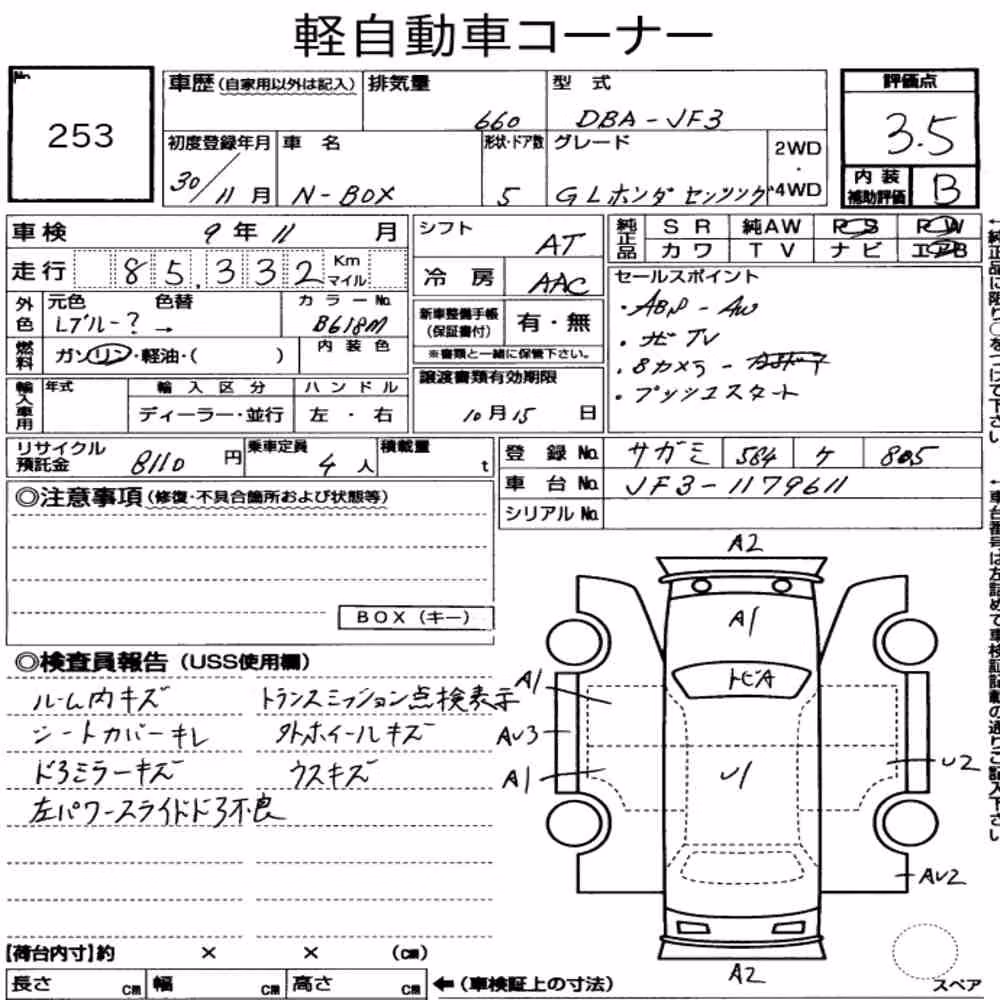 軽自動車コーナー
No.
253
車歴 (自家用以外は記入)
排気量
660
型式
DBA-JF3
評価点
3.5
初度登録年月
30/11月
車名
N-BOX
形状・ドア数
5
グレード
GLホンダセンシング
2WD
・
4WD
内装
補助評価
B
車検
9年11月
シフト
AT
純正品
SR
純AW
PS
PW
カワ
TV
ナビ
エアB
走行
85,332
Km
マイル
冷房
AAC
セールスポイント
・ABS-AW
・ナビTV
・Bカメラ-
・プッシュスタート
外色
元色
色替
Lブルー? →
カラーNo.
B618M
新車整備手帳
(保証書付)
有・無
※書類と一緒に保管下さい。
燃料
ガソリン・軽油・( )
内装色
譲渡書類有効期限
10月15日
輸入車用
年式
輸入区分
ディーラー・並行
ハンドル
左・右
リサイクル
預託金
8110円
乗車定員
4人
積載量
t
登録No.
サガミ
584
ケ
805
車台No.
JF3-1179611
シリアルNo.
◎注意事項 (修復・不具合箇所および状態等)
BOX (キー)
◎検査員報告 (USS使用欄)
ルーム内キズ
トランスミッション点検表示
シートカバーキレ
外ホイールキズ
ドアミラーキズ
ウスキズ
左パワースライドドア不良
A2
A1
トビA
A1
AU3
A1
U1
U2
AU2
A2
スペア
【荷台内寸】約 × × (cm)
長さ cm
幅 cm
高さ cm
←(車検証上の寸法)
←純正品に限り○をつけて下さい
←車台番号は左詰めで車検証記載の通りご記入下さい